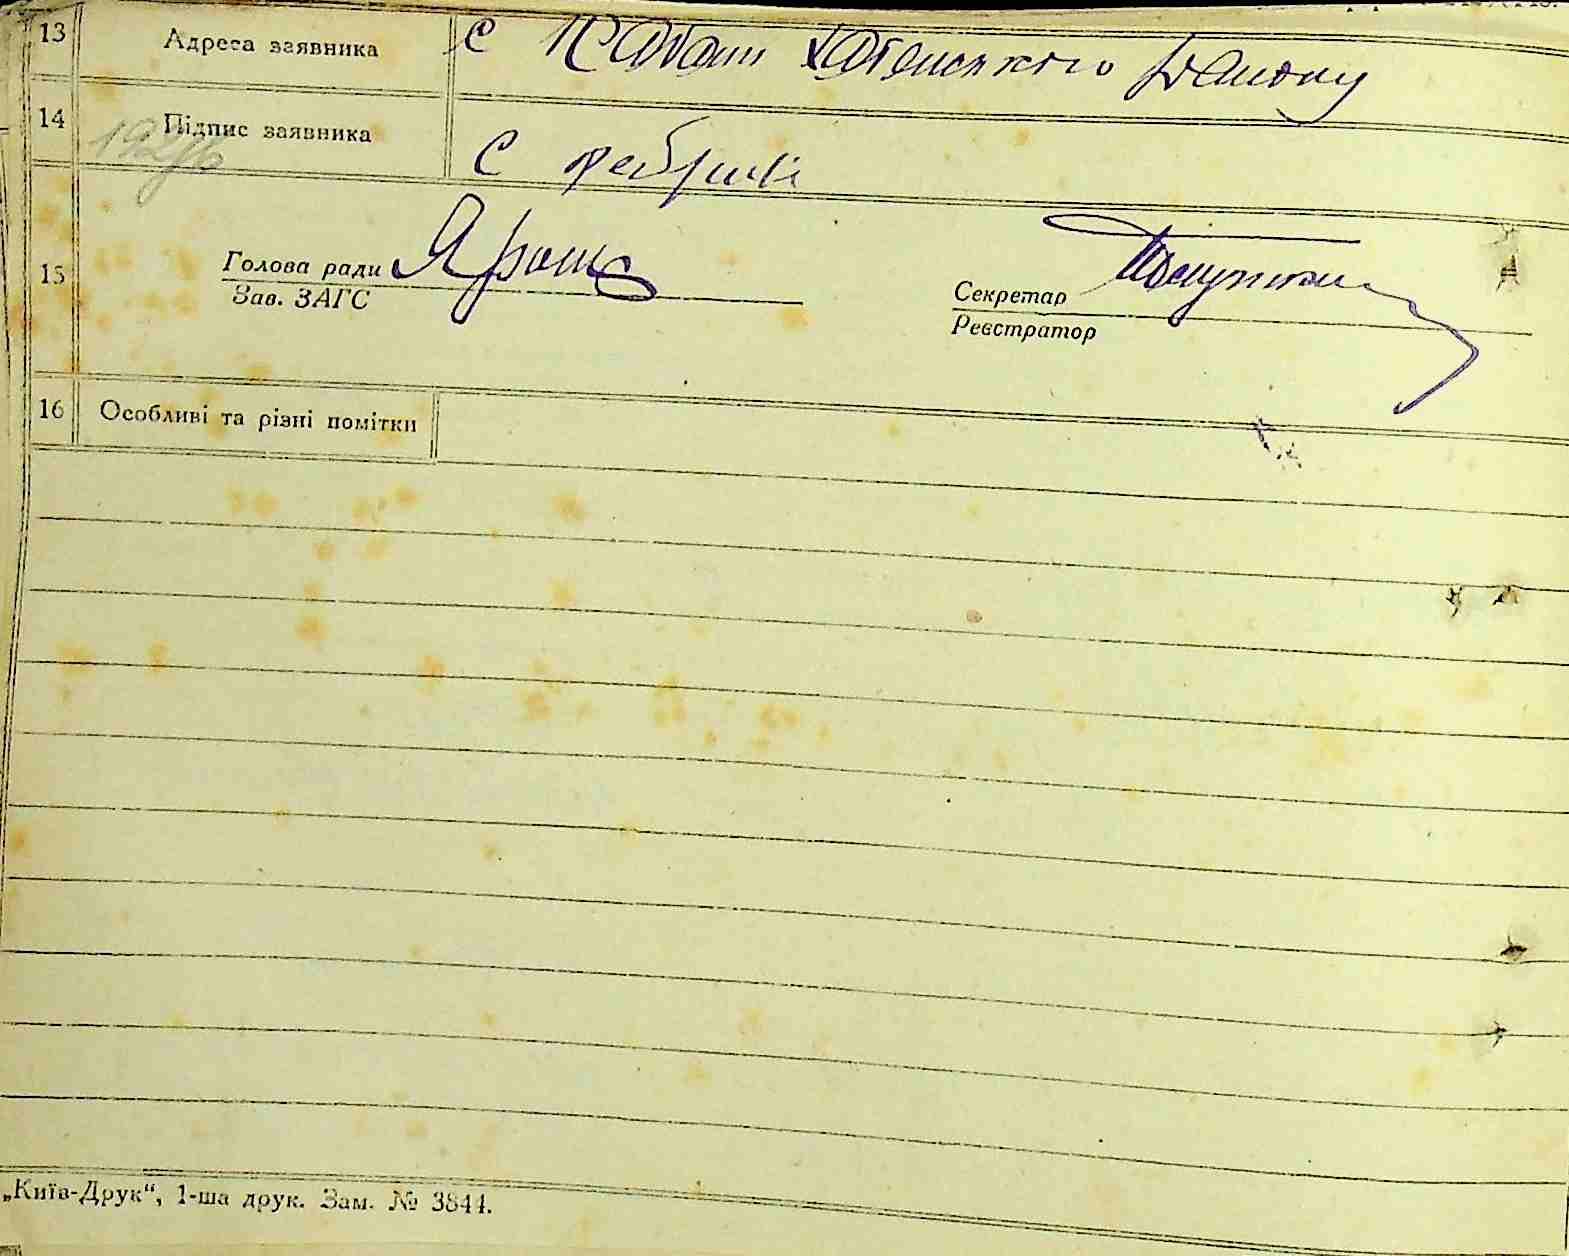 13 Адреса заявника с Кабани Хотянського району
14 Підпис заявника С
15 Голова ради Ярош Секретар
Зав. ЗАГС Реєстратор
16 Особливі та різні помітки
„Київ-Друк“, 1-ша друк. Зам. № 3844.